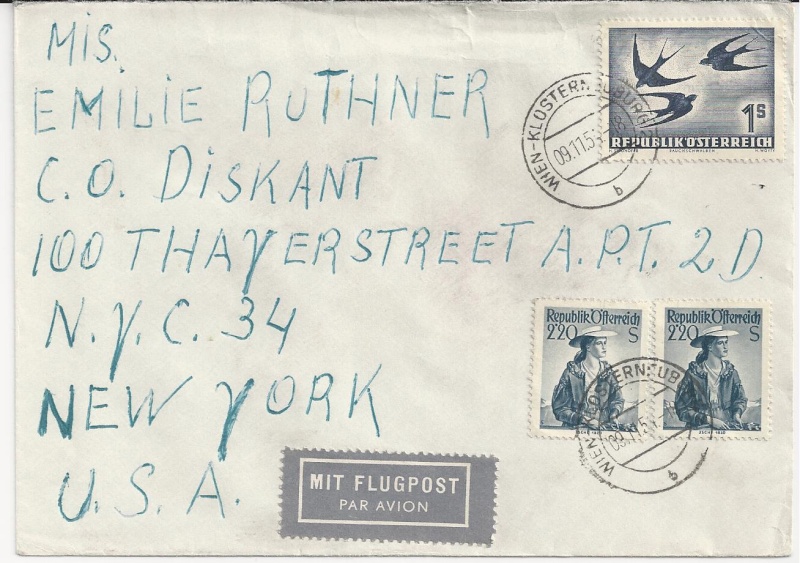 MIS.
EMILIE RUTHNER
C.O. DISKANT
100 THAYERSTREET A.P.T. 2 D.
N.Y.C. 34
NEW YORK
U.S.A.
MIT FLUGPOST
PAR AVION
1S
REPUBLIK ÖSTERREICH
RAUCHSCHWALBEN
WIEN-KLOSTERNEUBURG
09.11.5
b
Republik Österreich
2'20 S
Republik Österreich
2'20 S
WIEN-KLOSTERNEUB
09.11.5
b